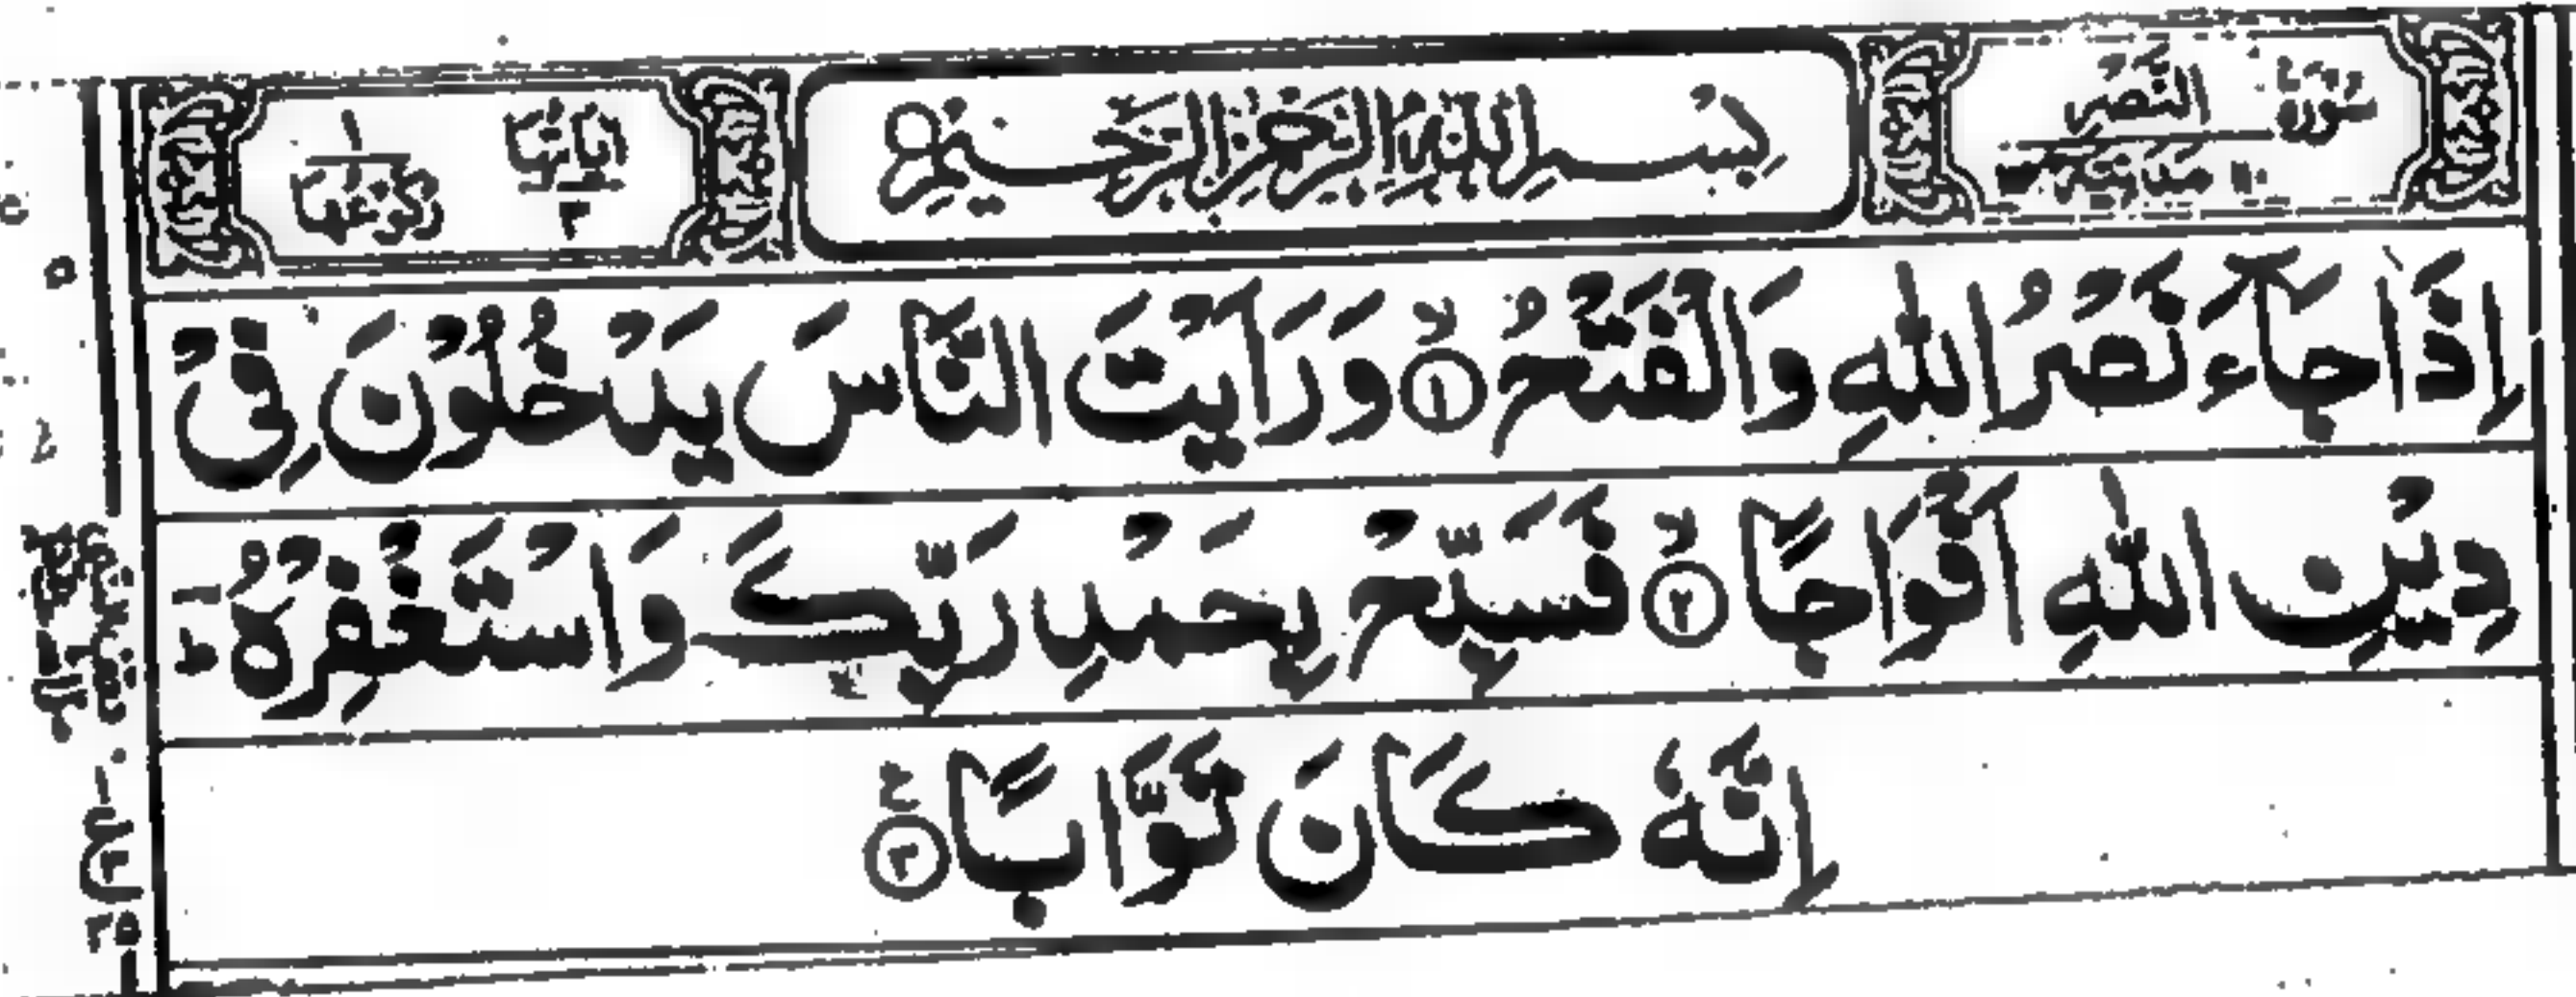 سُوْرَةُ النَّصْرِ مَدَنِيَّةٌ
بِسْمِ اللّٰهِ الرَّحْمٰنِ الرَّحِيْمِ
اٰيَاتُهَا ٣ رُكُوْعُهَا ١
اِذَا جَآءَ نَصْرُ اللّٰهِ وَالْفَتْحُ ۙ﴿١﴾ وَرَاَيْتَ النَّاسَ يَدْخُلُوْنَ فِيْ
دِيْنِ اللّٰهِ اَفْوَاجًا ۙ﴿٢﴾ فَسَبِّحْ بِحَمْدِ رَبِّكَ وَاسْتَغْفِرْهُ ؕ
اِنَّهٗ كَانَ تَوَّابًا ﴿٣﴾ ع
١
ع
٣
٣٥